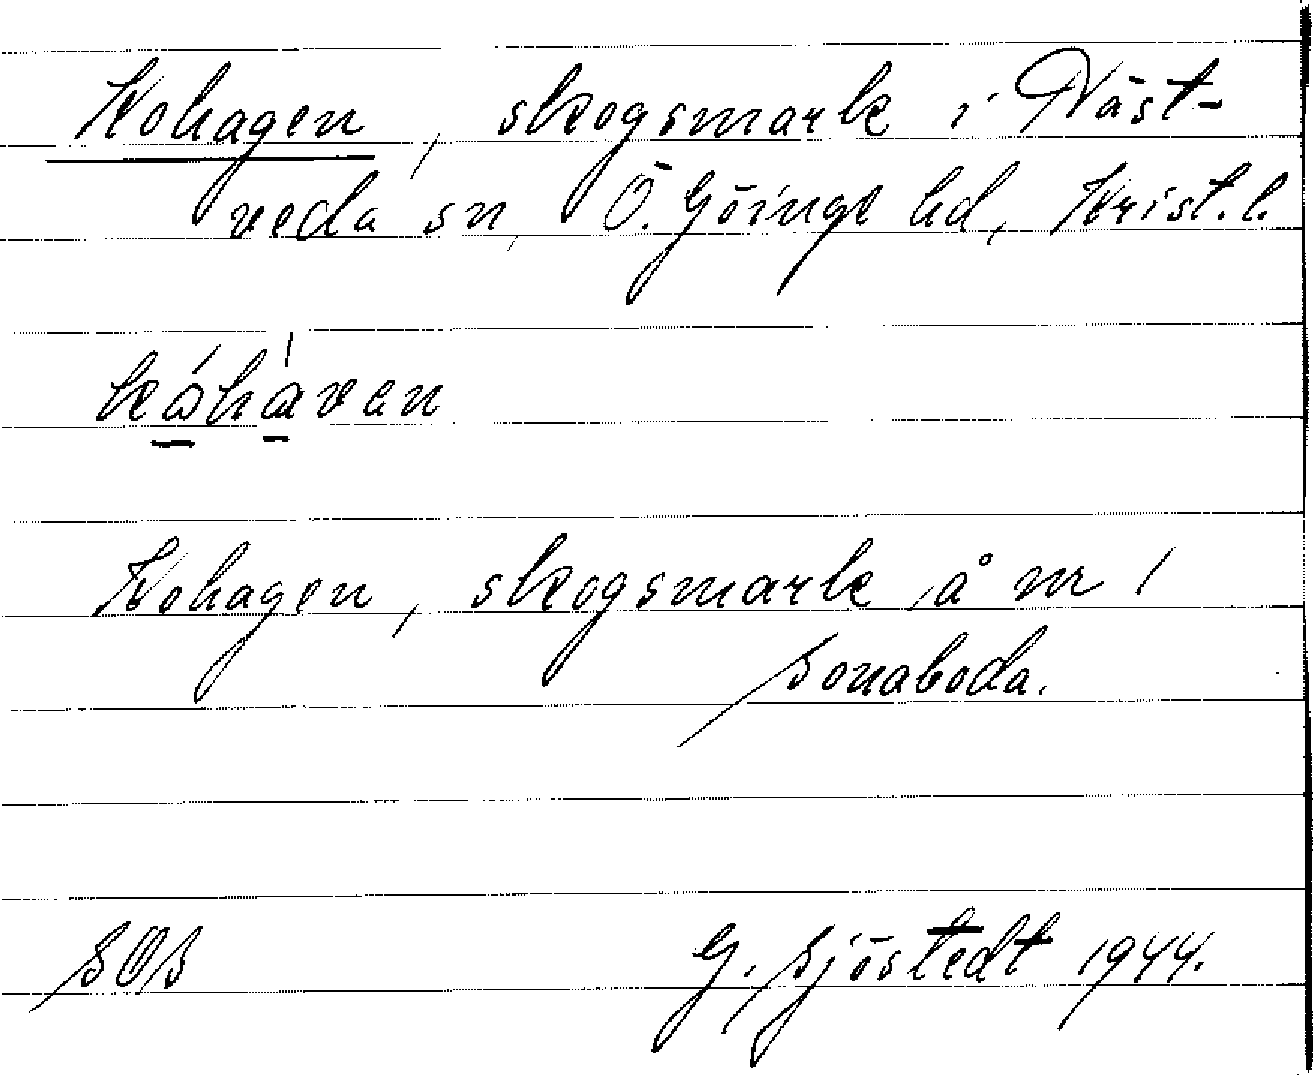 Kohagen, skogsmark i Näst-
veda sn, Ö. Göinge hd, Krist. l.
kóhàven
Kohagen, skogsmark å nr 1
Sonaboda.
SOS G. Sjöstedt 1944.